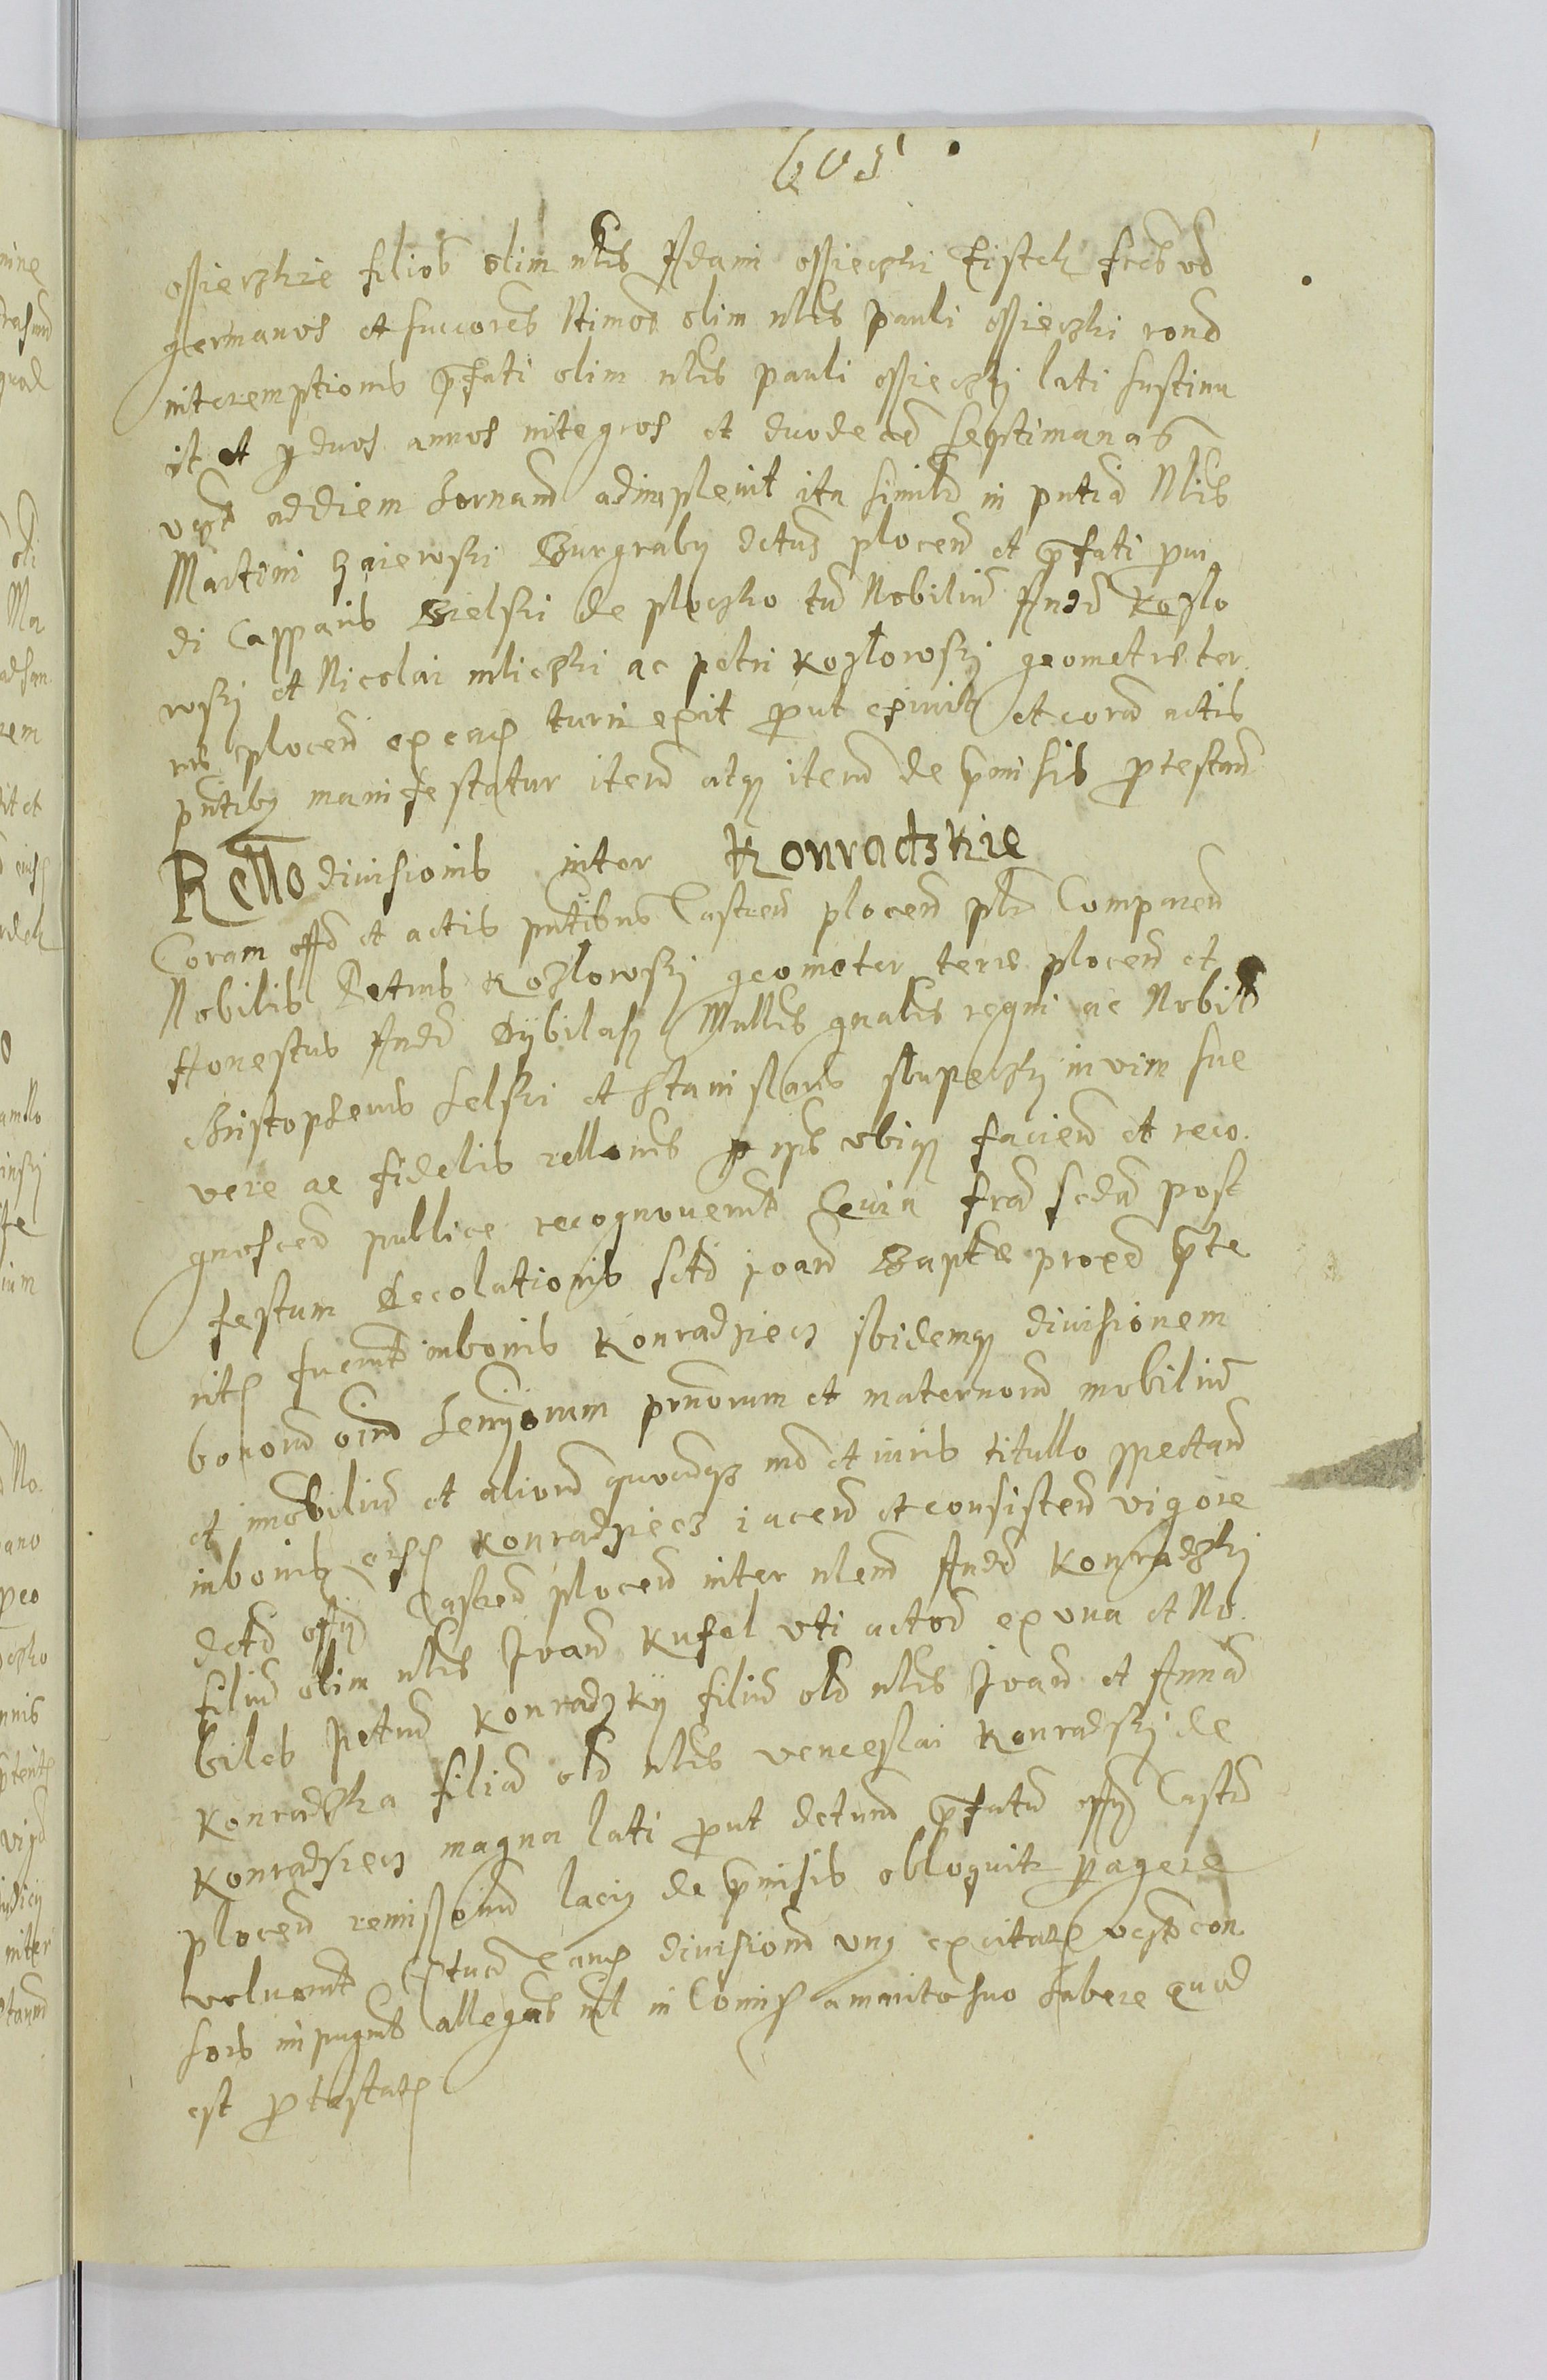 605
ossieczkie filios olim nlis Adami ossieczki Eiusdem frēs vt
germanos et succores ntimos olim nlis pauli ossieczki rone
interemptionis pfati olim nlis pauli ossieczki lati sustinu
it et p duos annos integros et duodecem septimanas
vsq ad diem hornam adimpleuit ita similr in pntia Nlis
Martini Burgraby dctus plocen et pfati pui
di Casparis Bielski de plocsko tū Nobiliū Andr Kozlo
wski et Nicolai mliczki ac petri Kozlowski geometre ter
re plocen ex eaq turri exit put exiuit et corā actis
pntibq manifestatur iterū atq iterū de pmissis ptestand
Rello divisionis inter Konradzkie
Coram offo et actis pntibus Castren plocen psr Comparen
Nobilis Petrus Kozlowski geometer terre plocen et
Honestus Andr Dybilasz Mnllis gnalis regni ac Nobils
Christopherus Lelski et Stanislaus slupeczki in vim sue
vere ac fidelis rellonis p ipos vbiq faciend et reco
gnoscend publice recognouerut Quia fria scda post
festum decolationis scti Joann Baptte proxe pte
ritj fuerut in bonis Konradziecz ibidemq diuisionem
bonorū oim hereiorum prnorum et maternorū mobiliū
et imobiliū et aliorū quocuqz mō et iuris titullo spectan
in bonis eisdj Konradziecz iacen et consisten vigore
dcti offy Castren plocen inter nlem Andr Konradzki
filiū olim nlis Joann Kufel vti actore ex vna et No
biles petrū Konradzky filiū oli nlis Joann et Annā
Konradzka filiā oli nlis venceslai Konradzki de
Konradziecz magna lati put dctum pfatū offy Castrē
plocen remissoriū laciq de pmissis obloquitr pagere
voluerut diuisionē vnq excitarj vestcon
sors inpugnat allegat in Comis a marito suo habere quod
est ptestatj